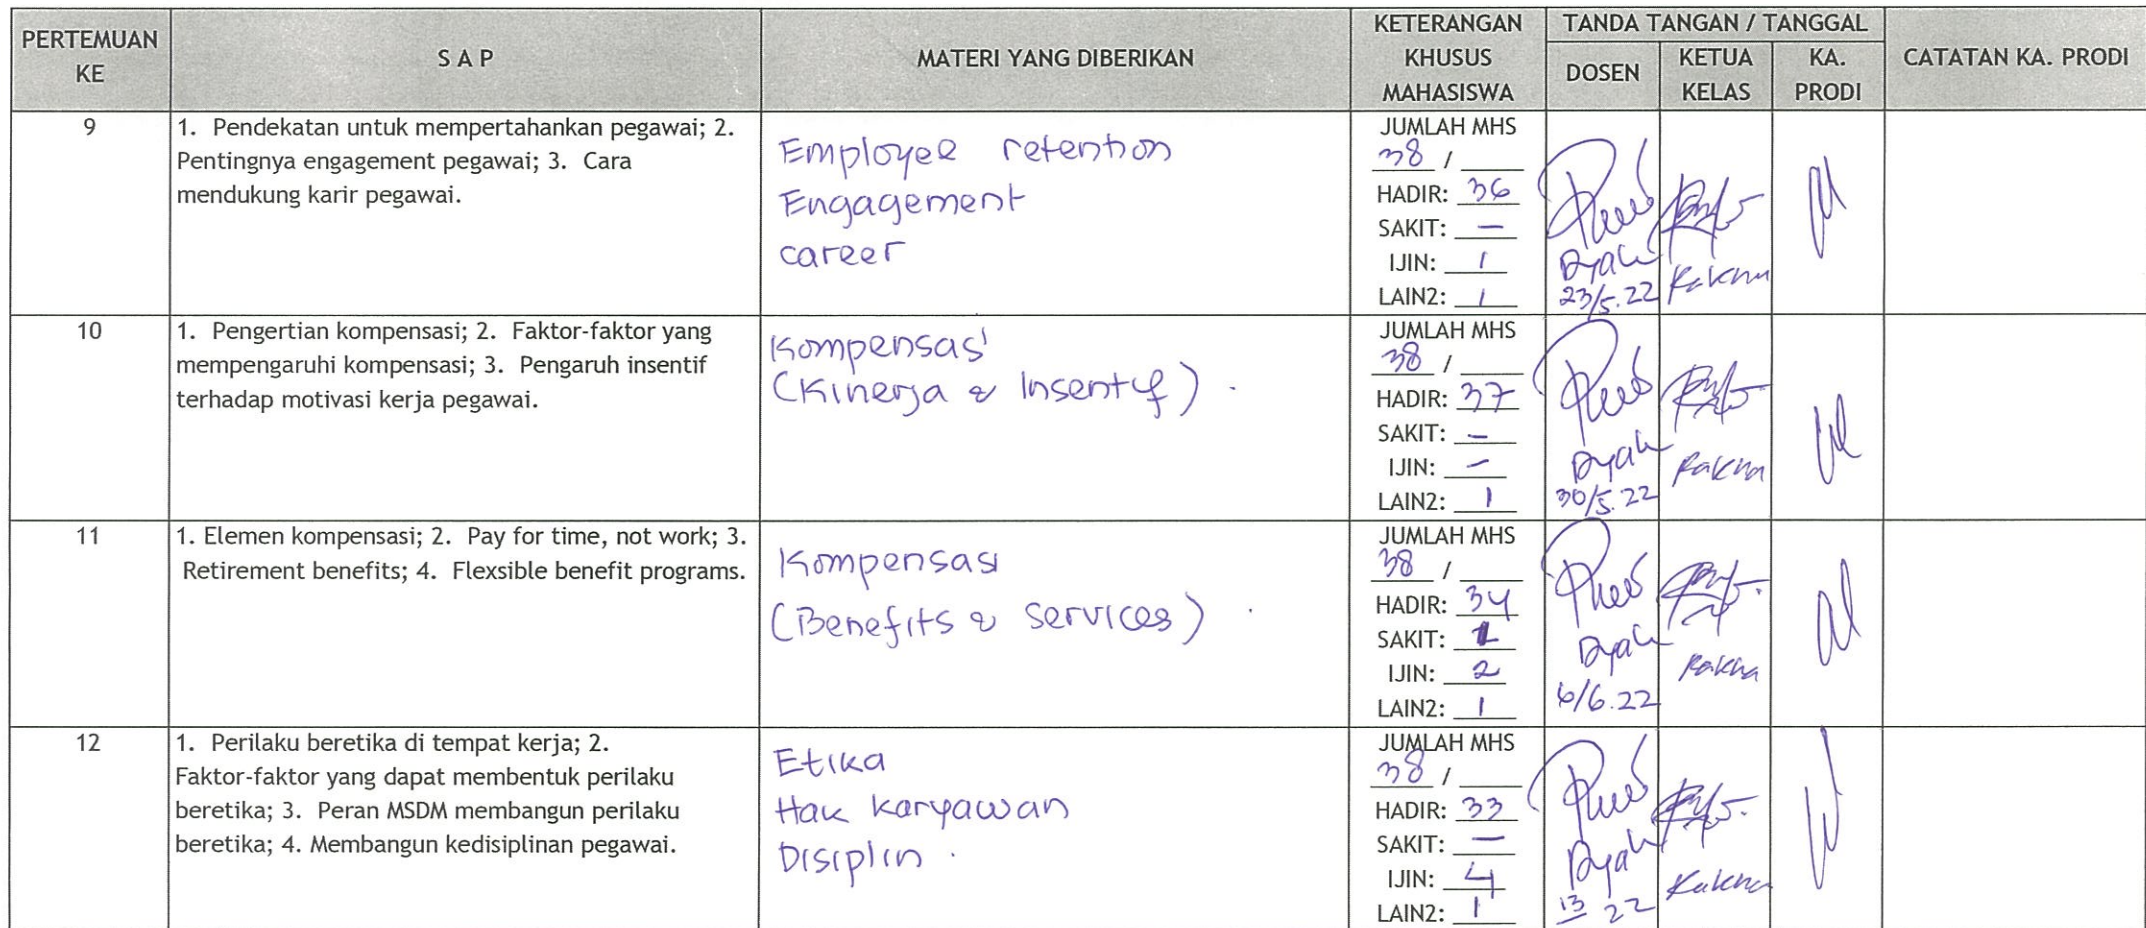 PERTEMUAN KE
S A P
MATERI YANG DIBERIKAN
KETERANGAN KHUSUS MAHASISWA
TANDA TANGAN / TANGGAL
DOSEN
KETUA KELAS
KA. PRODI
CATATAN KA. PRODI
9
1. Pendekatan untuk mempertahankan pegawai; 2.
Pentingnya engagement pegawai; 3. Cara
mendukung karir pegawai.
Employee retention
Engagement
career
JUMLAH MHS
38 / ____
HADIR: 36
SAKIT: –
IJIN: 1
LAIN2: 1
Dyah
23/5.22
Rakha
10
1. Pengertian kompensasi; 2. Faktor-faktor yang
mempengaruhi kompensasi; 3. Pengaruh insentif
terhadap motivasi kerja pegawai.
Kompensasi
(Kinerja & Insentif) .
JUMLAH MHS
38 / ____
HADIR: 37
SAKIT: –
IJIN: –
LAIN2: 1
Dyah
30/5.22
Rakha
11
1. Elemen kompensasi; 2. Pay for time, not work; 3.
Retirement benefits; 4. Flexsible benefit programs.
Kompensasi
(Benefits & services) .
JUMLAH MHS
38 / ____
HADIR: 34
SAKIT: 1
IJIN: 2
LAIN2: 1
Dyah
6/6.22
Rakha
12
1. Perilaku beretika di tempat kerja; 2.
Faktor-faktor yang dapat membentuk perilaku
beretika; 3. Peran MSDM membangun perilaku
beretika; 4. Membangun kedisiplinan pegawai.
Etika
Hak karyawan
Disiplin .
JUMLAH MHS
38 / ____
HADIR: 33
SAKIT: –
IJIN: 4
LAIN2: 1
Dyah
13 22
Rakha